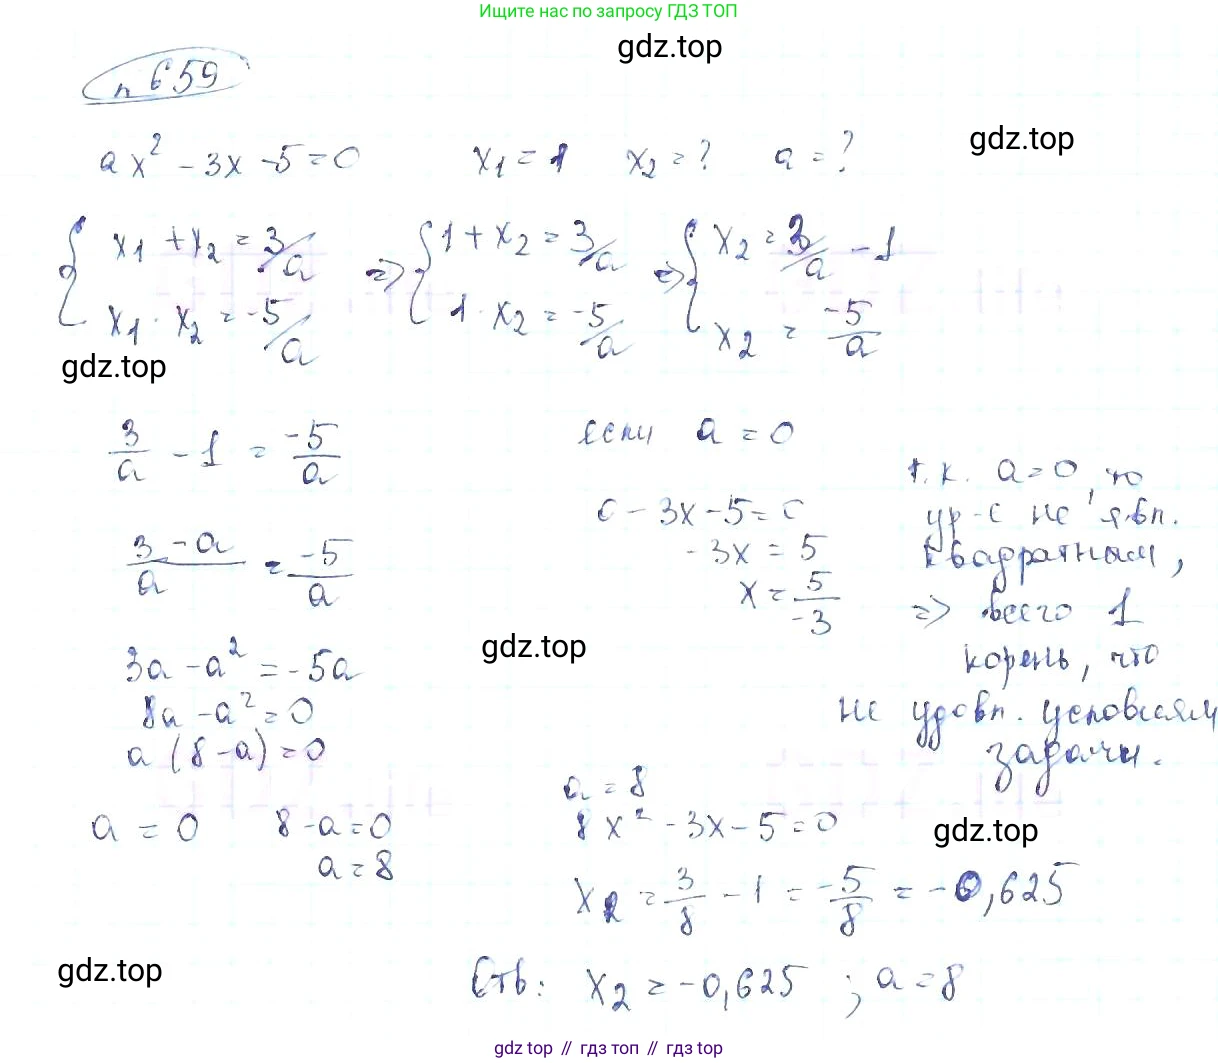 Ищите нас по запросу ГДЗ ТОП
gdz.top
n 659
gdz.top
ax² - 3x - 5 = 0    x₁ = 1    x₂ = ?    a = ?
{ x₁ + x₂ = 3/a    => { 1 + x₂ = 3/a    => { x₂ = 3/a - 1
x₁ · x₂ = -5/a    1 · x₂ = -5/a    x₂ = -5/a
gdz.top
3/a - 1 = -5/a
3-a/a = -5/a
3a - a² = -5a
8a - a² = 0
a (8 - a) = 0
a = 0    8 - a = 0
a = 8
если a = 0
0 - 3x - 5 = 0
- 3x = 5
x = 5/-3
т.к. a = 0, то
ур-е не явл.
квадратным,
=> всего 1
корень, что
не удовл. условиям
задачи.
gdz.top
a = 8
8x² - 3x - 5 = 0
gdz.top
x₂ = 3/8 - 1 = -5/8 = -0,625
gdz.top
Отв: x₂ = -0,625 ; a = 8
gdz top // гдз топ // gdz top